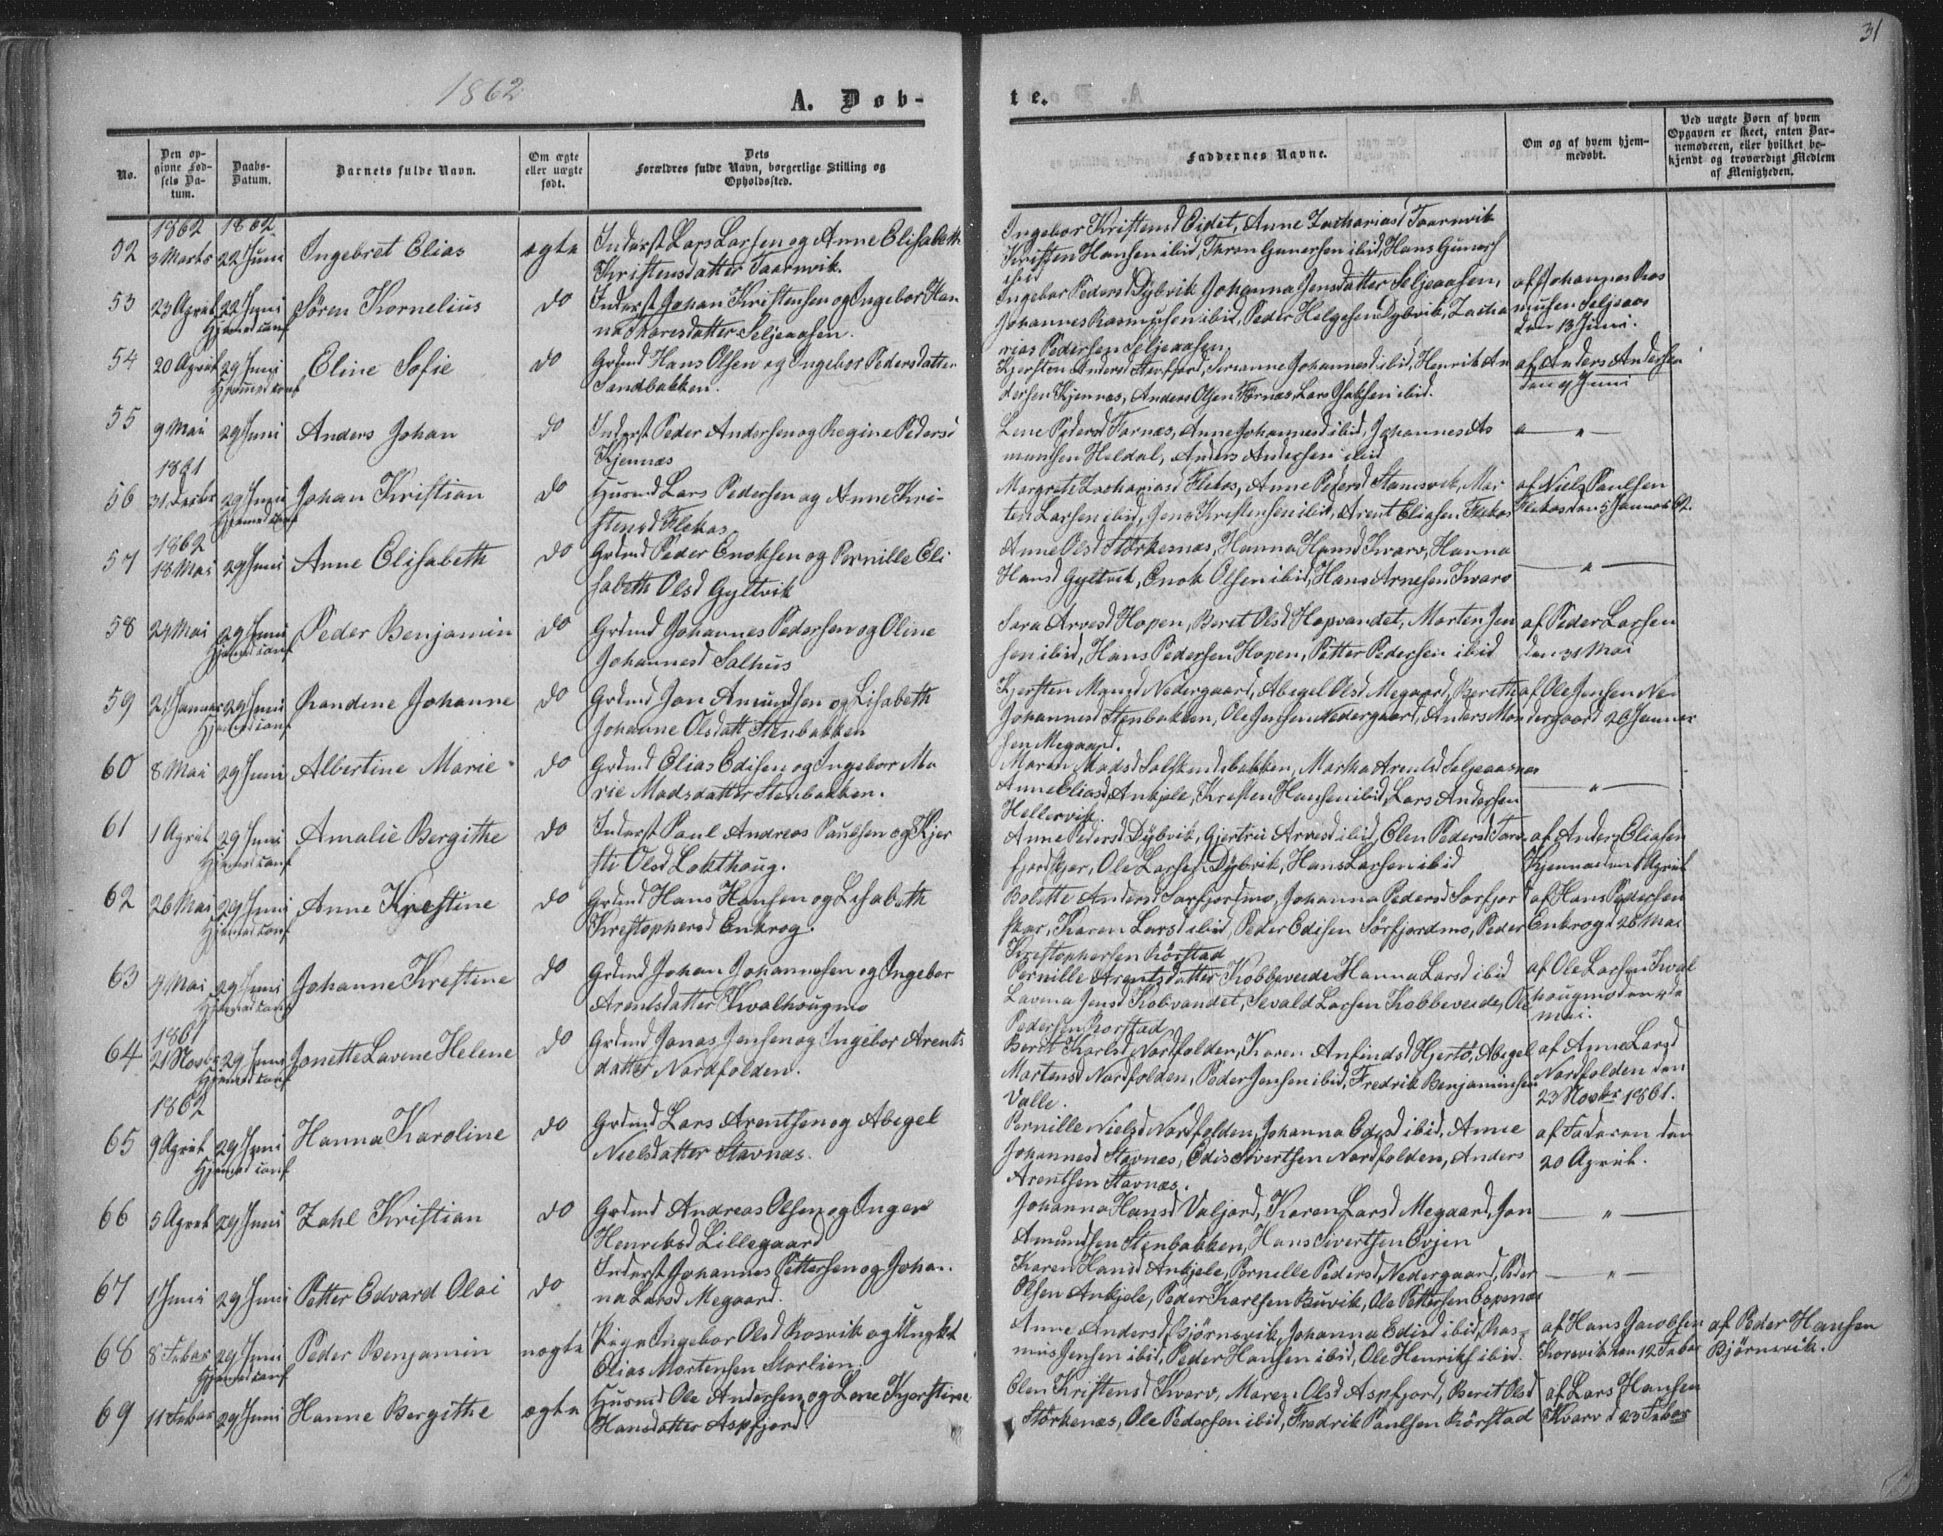 31
1862
A. Døb-
te.
No.
Den op-
givne Fød-
sels Da-
tum.
Daabs-
Datum.
Barnets fulde Navn.
Om ægte
eller uægte
født.
Dets
Forældres fulde Navn, borgerlige Stilling og
Opholdssted.
Faddernes Navne.
Om og af hvem hjem-
medøbt.
Ved uægte Børn af hvem
Opgaven er skeet, enten Bar-
nemoderen, eller hvilket be-
kjendt og troværdigt Medlem
af Menigheden.
1862 1862
52 3 Marts 22 Juni Ingebret Elias ægte Inderst Lars Larsen og Anne Elisabeth
Kristensdatter Taarnvik.
Ingebor Kristensd Eidet, Anne Zachariasd Taarnvik
Kristen Hansen ibid, Thron Gunersen ibid, Hans Gunersf
ibid
53 23 April 22 Juni Søren Kornelius do Inderst Johan Kristensen og Ingebor Han
Hjemed conf
Seljeaasen.
Ingebor Pedersd Dybvik, Johanna Jensdatter Seljeaasen,
Johannes Rasmusen ibid, Peder Helgesen Dybvik, Zacha
rias Pedersen Seljeaasen.
af Johannes Ras
musen Seljeaas
den 13 Juni.
54 20 April 29 Juni Eline Sofie do Grdmd Hans Olsen og Ingebor Pedersdatter
Hjemed conf
Sandbakken.
Kjersten Andersd Sørfjord, Johannesd ibid, Henrik An
dersen Kjennæs, Anders Olsen Tørnæs, Lars ibid.
af Anders Andersen
den Juni
55 9 Mai 29 Juni Anders Johan do Inderst Peder Andersen og Regine Pedersd
Kjennæs
Lene Pedersd Tørnæs, Anne Johannesd ibid, Johannes As
mundsen Heldal, Anders Andersen ibid
"
1861
56 31 Decbr 29 Juni Johan Kristian do Husmd Lars Pedersen og Anne Kri-
Hjemed conf
stensd Flekas
Margrete Zachariasd Flekos, Anne Pedersd Stamsvik, Mar
ten Larsen ibid, Jens Kristensen ibid, Arent Eliasen Flekos
af Niels Paulsen
Flekos den 5 Januar 62.
1862
57 18 Mai 29 Juni Anne Elisabeth do Grdmd Peder Enoksen og Pernille Eli
sabeth Olsd Gyltvik
Anne Olsd Størkesnæs, Hanna Hansd Kvarv, Hanna
Hansd Gyltvik, Enok Olsen ibid, Hans Arnesen Kvarv
"
58 24 Mai 29 Juni Peder Benjamin do Grdmd Johannes Pedersen og Oline
Hjemed conf
Johannesd Salhus
Sara Arvesd Hopen, Beret Olsd Hopvandet, Morten Jen
sen ibid, Hans Pedersen Hopen, Petter Pedersen ibid
af Peder Larsen
den 31 Mai
59 21 Januar 29 Juni Randine Johanne do Grdmd Jon Amundsen og Lisabeth
Hjemed conf
Johanne Olsdatt Stenbakken
Kjersten Monsd Nedergaard, Abigel Olsd Megaard, Bereth
Johannesd Stenbakken, Ole Jensen Nedergaard, Anders Mon
sen Megaard.
af Ole Jensen Ne-
dergaard 26 Januar
60 8 Mai 29 Juni Albertine Marie do Grdmd Elias Edisen og Ingebor Ma
rie Madsdatter Stenbakken.
Maren Madsd Solstensbakken, Martha Arentsd Seljeaasnæs
Anne Eliasd Ankjele, Kresten Hansen ibid, Lars Andersen
Hellervik.
"
61 1 April 29 Juni Amalie Bergithe do Inderst Paul Andreas Paulsen og Kjer
Hjemed conf
sti Olsd Lokthoug.
Anne Pedersd Dybvik, Gjertru Arvesd ibid, Elen Pedersd Sørv
fjordkjer, Ole Larsen Dybvik, Hans Larsen ibid
af Anders Eliasen
Kjennæs den April
62 26 Mai 29 Juni Anne Kjrestine do Grdmd Hans Hansen og Lisabeth
Hjemed conf
Krestophersd Enkrog.
Bolette Andersd Sørfjordmo, Johanna Pedersd Sørfjor
skar, Karen Larsd ibid, Peder Edisen Sørfjordmo, Peder
Krestophersen Rørstad
af Hans Pedersen
Enkrog d 28 Mai
63 4 Mai 29 Juni Johanne Krestine do Grdmd Johan Johannesen og Ingebor
Hjemed conf
Arentsdatter Kvalhougmo
Pernille Arentsdatter Kobbeveide, Hanna Larsd ibid
Lavina Jensd Kobvandet, Sevald Larsen Kobbeveide, Ole
Pedersen Rørstad
af Ole Larsen Kval
hougmo den 4de
mai.
1861
64 21 Novbr 29 Juni Jonette Lavine Helene do Grdmd Jonas Jensen og Ingebor Arents
Hjemed conf
datter Nordfolden.
Berit Karlsd Nordfolden, Karen Anfindsd Hjertø, Abigel
Martensd Nordfolden, Peder Jensen ibid, Fredrik Benjaminsen
Valle.
af Anne Larsd
Nordfolden den
23 Novbr 1861.
1862
65 9 April 29 Juni Hanna Karoline do Grdmd Lars Arentsen og Abegel
Hjemed conf
Nielsdatter Stavnæs.
Pernille Nielsd Nordfolden, Johanna Edisd ibid, Anne
Johannesd Stavnæs, Edis Sivertsen Nordfolden, Anders
Arentsen Stavnæs.
af Faderen den
20 April.
66 5 April 29 Juni Zahl Kristian do Grdmd Andreas Olsen og Inger
Henriksd Lillegaard
Johanna Hansd Valjord, Karen Larsd Megaard, Jon
Amundsen Stenbakken, Hans Sivertsen Evjen
"
67 1 Juni 29 Juni Petter Edvard Olai do Inderst Johannes Pettersen og Johan-
na Larsd Megaard.
Karen Hansd Ankjele, Pernelle Pedersd Nedergaard, Peder
Olsen Ankjele, Peder Karlsen Buvik, Ole Pettersen Espenæs
"
68 8 Febar 29 Juni Peder Benjamin uægte Pige Ingebor Olsd Rosvik og Ungkl
Hjemed conf
Elias Mortensen Storlien.
Anne Andersd Bjørnsvik, Johanna Edisd ibid, Ras-
mus Jensen ibid, Peder Hansen ibid, Ole Henriks ibid.
af Hans Jacobsen
Korsvik den 12 Febar
af Peder Hansen
Bjørnsvik.
69 11 Febar 29 Juni Hanne Bergithe ægte Husmd Ole Andersen og Lene Kjerstine
Hansdatter Aspfjord.
Elen Kristensd Kvarv, Maren Olsd Aspfjord, Beret Olsd
Størkenæs, Ole Pedersen ibid, Fredrik Paulsen Rørstad
af Lars Hansen
Kvarv d 23 Febar